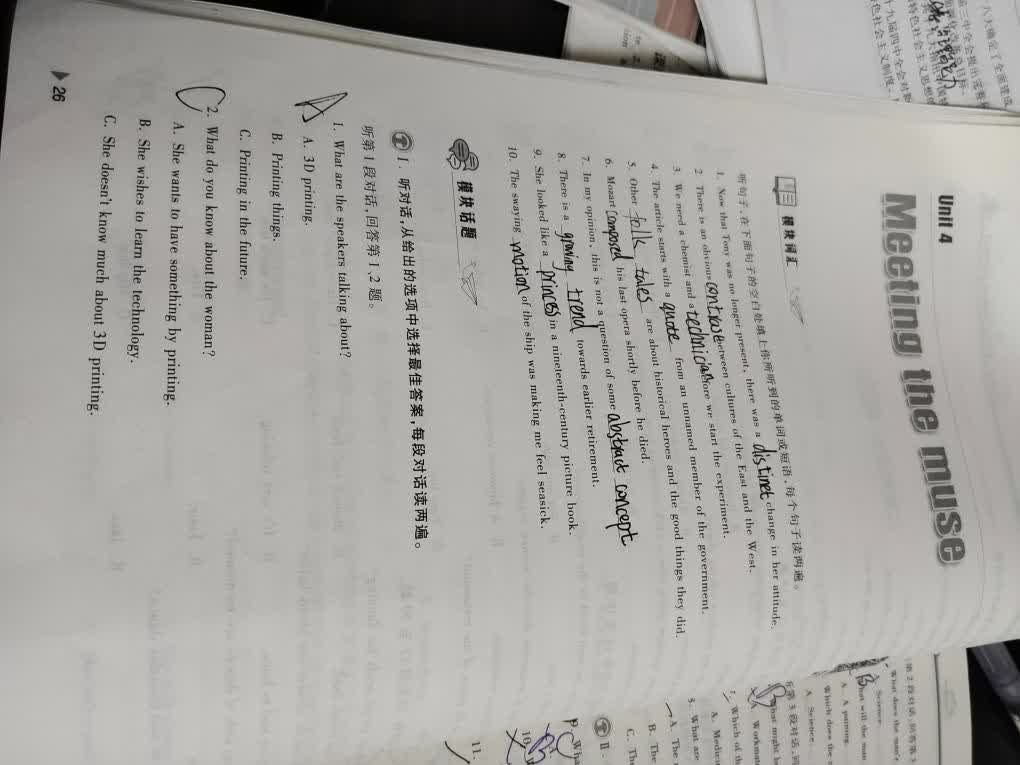 Unit 4
Meeting the muse
模块词汇
听句子,在下面句子的空白处填上你所听到的单词或短语,每个句子读两遍。
1. Now that Tony was no longer present, there was a distinct change in her attitude.
2. There is an obvious between cultures of the East and the West.
3. We need a chemist and a technician before we start the experiment.
4. The article starts with a quote from an unnamed member of the government.
5. Other folk tales are about historical heroes and the good things they did.
6. Mozart composed his last opera shortly before he died.
7. In my opinion, this is not a question of some abstract concept
8. There is a growing trend towards earlier retirement.
9. She looked like a princess in a nineteenth-century picture book.
10. The swaying motion of the ship was making me feel seasick.
模块话题
Ⅰ. 听对话,从给出的选项中选择最佳答案,每段对话读两遍。
听第1段对话,回答第1、2题。
1. What are the speakers talking about?
A A. 3D printing.
B. Printing things.
C. Printing in the future.
C 2. What do you know about the woman?
A. She wants to have something by printing.
B. She wishes to learn the technology.
C. She doesn't know much about 3D printing.
26
第2段对话,回答第3
What does the man
Science.
B
A. A painting.
Which does the
A. Science.
第3段对话,回
B
A. Workmat
Which of th
A. Medici
3. What are
A. The
B. The
C. Th
Ⅱ.
10
11.
八大确定了全面建成
十九届四中全会对
色社会主义制度